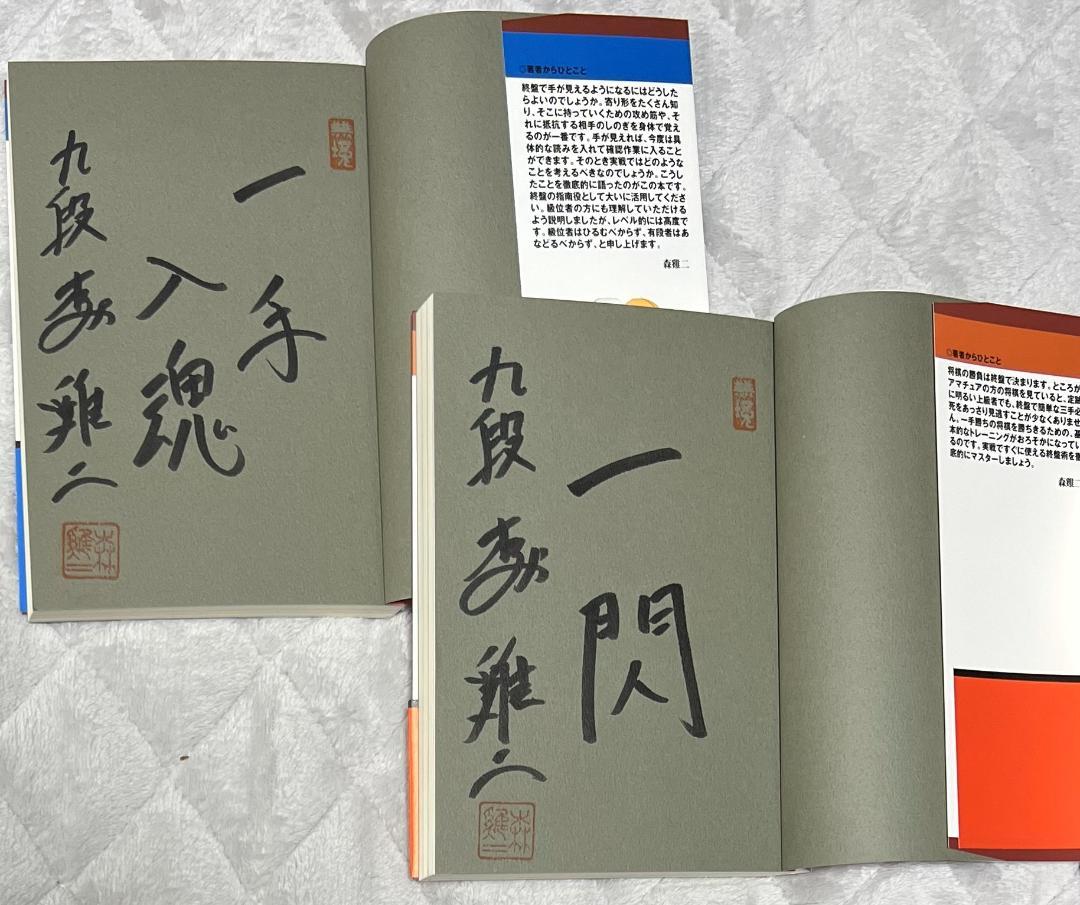 一手
入魂
九段 森雞二
森雞二
◎著者からひとこと
終盤で手が見えるようになるにはどうした
らよいのでしょうか。寄り形をたくさん知
り、そこに持っていくための攻め筋や、そ
れに抵抗する相手のしのぎを身体で覚え
るのが一番です。手が見えれば、今度は具
体的な読みを入れて確認作業に入ること
ができます。そのとき実戦ではどのような
ことを考えるべきなのでしょうか。こうし
たことを徹底的に語ったのがこの本です。
終盤の指南役として大いに活用してくださ
い。級位者の方にも理解していただける
よう説明しましたが、レベル的には高度で
す。級位者はひるむべからず、有段者はあ
などるべからず、と申し上げます。
森雞二
一閃
九段 森雞二
森雞二
◎著者からひとこと
将棋の勝負は終盤で決まります。ところが
アマチュアの方の将棋を見ていると、定跡
に明るい上級者でも、終盤で簡単な三手必
死をあっさり見逃すことが少なくありませ
ん。一手勝ちの将棋を勝ちきるための、基
本的なトレーニングがおろそかになってい
るのです。実戦ですぐに使える終盤術を徹
底的にマスターしましょう。
森雞二